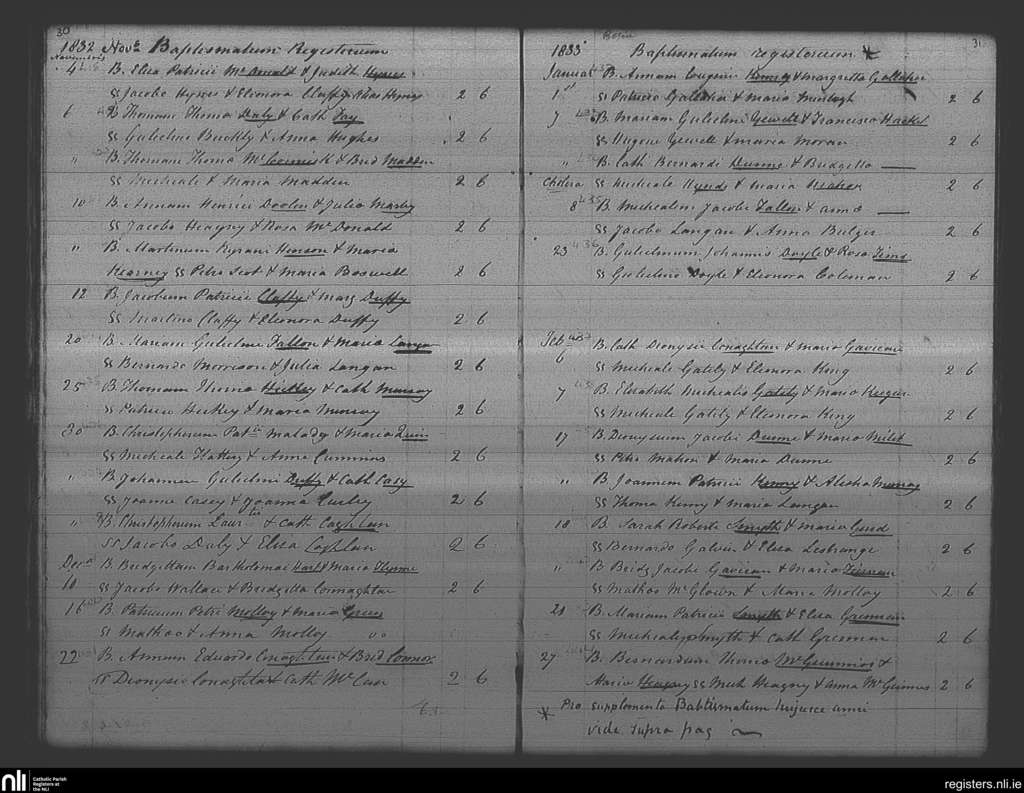 30
1832 Nov.r Baptismatum Registerium
Novembris
4 B. Eliza Patricii Mc Donald & Judith Hynes
SS Jacobo Hynes & Elenora Claffy 2 6
6 B Thomam Thoma Daly & Cath Fay
SS Gulielmo Buckly & Anna Hughes 2 6
" B. Thomam Thoma Mc Cormick & Brid Madden
SS Micheale & Maria Madden 2 6
10 B. Annam Henrici Doolen & Julia
SS Jacobo Heagny & Rosa Mc Donald 2 6
" B. Martinum Kyrani Henson & Maria
Kearney SS Petro Scot & Maria Boswell 2 6
12 B. Jacobum Patricii Claffy & Marg Duffy
SS Martino Claffy & Elenora Duffy 2 6
20 B. Mariam Gulielmi Fallon & Maria Langan
SS Bernardo Morrison & Julia Langan 2 6
25 B. Thomam Thoma Hickey & Cath Murray
SS Patricio Hickey & Maria Murray 2 6
30 B. Christopherum Pat Malady & Maria Quin
SS Micheale Flattery & Anna Cummins 2 6
" B. Johannem Gulielmi Duffy & Cath Casy
SS Joanne Casey & Joanna Curley 2 6
" B. Christopherum Laur & Cath Coghlan
SS Jacobo Daly & Eliza Coghlan 2 6
Dec B. Bridgettam Bartholomai Hart & Maria
10 SS Jacobo Wallace & Bridgetta Connaghtan 2 6
16 B. Patricium Petri Molloy & Maria
SS Matheo & Anna Molloy 00
22 B. Annam Eduardo Conaghtan & Brid Connor
SS Dionysio Conaghta & Cath Mc 2 6
31
1833 Baptismatum registerium *
Januar B. Annam Eugenii & Margretta Gallaher
1st SS Patricio Gallaher & Maria Murtagh 2 6
7 B. Mariam Gulielmi Yewett & Francisca Hacket
SS Hugone Yewett & Maria Moran 2 6
" B. Cath Bernardi Dunne & Bridgetta —
Cholera SS Micheale & Maria 2 6
8 B. Michealem Jacobi Fallon & Anna —
SS Jacobo Langan & Anna Bulger 2 6
23 B. Gulielmum Johannis Doyle & Rosa Tims
SS Gulielmo Doyle & Elenora Coleman 2 6
Feb B. Cath Dionysii Conaghtan & Maria Gavican
6 SS Micheale Gately & Elenora King 2 6
7 B. Elizabeth Michealis Gately & Maria Keegan
SS Micheale Gately & Elenora King 2 6
17 B. Dionysium Jacobi Dunne & Maria
SS Petro Mahon & Maria Dunne 2 6
" B. Joannem Patricii Kenny & Alicha Murray
SS Thoma Kenny & Maria Langan 2 6
18 B. Sarah Roberti Smyth & Maria
SS Bernardo Galvin & Eliza Lestrange 2 6
" B. Bridg Jacobi Gavican & Maria Tiernan
SS Matheo Mc Glown & Maria Molloy 2 6
21 B. Mariam Patricii Smyth & Eliza Grennan
SS Micheale Smyth & Cath Grennan 2 6
27 B. Bernardum Thoma Mc Guinnios &
Maria Heagny SS Mich Heagny & Anna Mc Guinnes 2 6
* Pro supplemento Babtismatum hujusce anni
vide supra pag
nli
Catholic Parish
Registers at
the NLI
registers.nli.ie